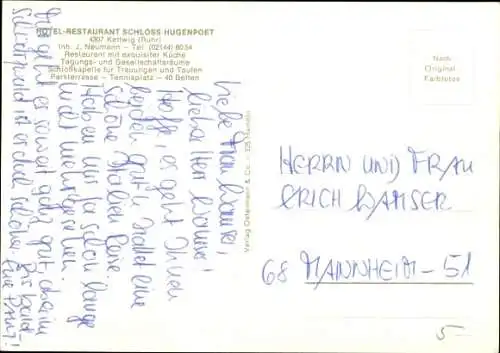 HOTEL-RESTAURANT SCHLOSS HUGENPOET
4307 Kettwig (Ruhr)
Inh. J. Neumann – Tel. (02144) 6054
Restaurant mit exquisiter Küche
Tagungs- und Gesellschaftsräume
Schloßkapelle für Trauungen und Taufen
Parkterrasse – Tennisplatz – 40 Betten
Nach
Original
Farbfotos
Verlag Ostermann & Co.
Liebe Frau
lieber Herr
Hoffe, es geht Ihnen
beiden gut u. hatten eine
schöne
Haben uns ja schon lange
nicht mehr gesehen.
geht es soweit ganz gut,
ist es doch schöner. Bis bald
HERRN UND FRAU
ERICH WAMSER
68 MANNHEIM-51
5-